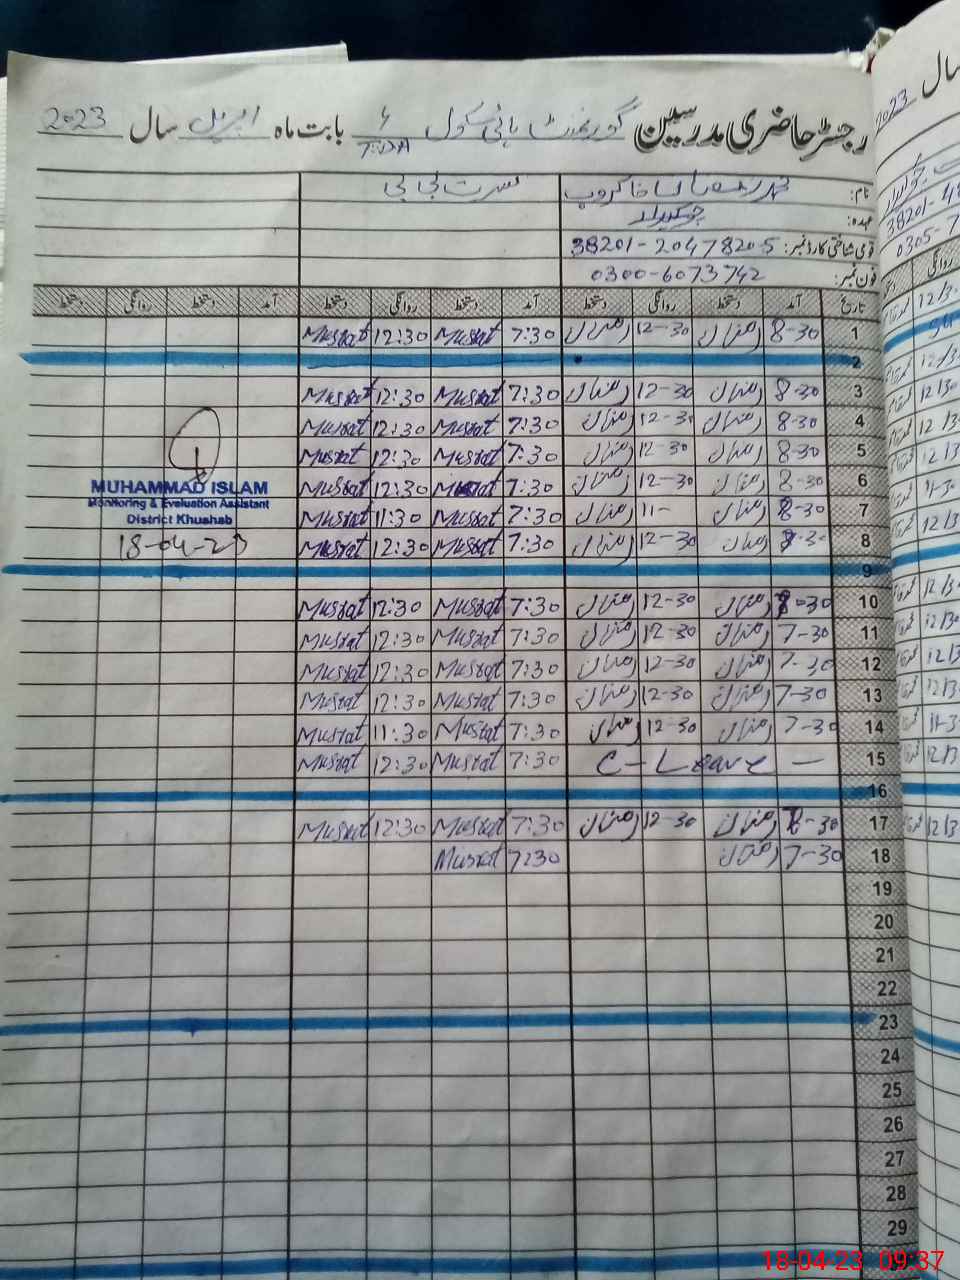 رجسٹر حاضری مدرسین گورنمنٹ ہائی سکول 6 T.D.A بابت ماہ اپریل سال 2023
نام: محمد رمضان خاکروب نصرت بی بی
عہدہ: چوکیدار
قومی شناختی کارڈ نمبر: 38201-2047820-5
فون نمبر: 0300-6073742
تاریخ آمد دستخط روانگی دستخط آمد دستخط روانگی دستخط آمد دستخط روانگی دستخط
1 8-30 رمضان 12-30 رمضان 7:30 Musrat 12:30 Musrat
2
3 8-30 رمضان 12-30 رمضان 7:30 Musrat 12:30 Musrat
4 8-30 رمضان 12-30 رمضان 7:30 Musrat 12:30 Musrat
5 8-30 رمضان 12-30 رمضان 7:30 Musrat 12:30 Musrat
6 8-30 رمضان 12-30 رمضان 7:30 Musrat 12:30 Musrat
7 8-30 رمضان 11- رمضان 7:30 Musrat 11:30 Musrat
8 8-30 رمضان 12-30 رمضان 7:30 Musrat 12:30 Musrat
MUHAMMAD ISLAM
Monitoring & Evaluation Assistant
District Khushab
18-04-23
9
10 8-30 رمضان 12-30 رمضان 7:30 Musrat 12:30 Musrat
11 7-30 رمضان 12-30 رمضان 7:30 Musrat 12:30 Musrat
12 7-30 رمضان 12-30 رمضان 7:30 Musrat 12:30 Musrat
13 7-30 رمضان 12-30 رمضان 7:30 Musrat 12:30 Musrat
14 7-30 رمضان 12-30 رمضان 7:30 Musrat 11:30 Musrat
15 C-Leave — 7:30 Musrat 12:30 Musrat
16
17 8-30 رمضان 12-30 رمضان 7:30 Musrat 12:30 Musrat
18 7-30 رمضان 7:30 Musrat
19
20
21
22
23
24
25
26
27
28
29
18-04-23 09:37